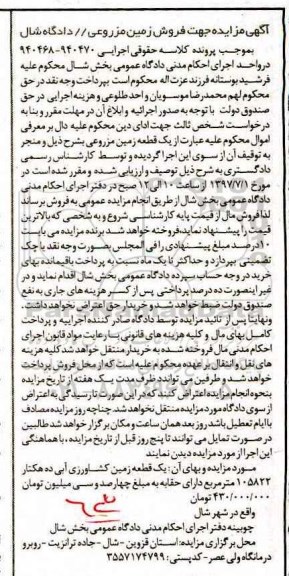 آگهی مزایده جهت فروش زمین مزروعی // دادگاه شال
بموجب پرونده کلاسه حقوقی اجرایی ۹۴۰۴۷۰-۹۴۰۴۶۸
در واحد اجرای احکام مدنی دادگاه عمومی بخش شال محکوم علیه
فرشید بوستانه فرزند عزت اله محکوم است بپرداخت وجه نقد در حق
محکوم لهم محمدرضا موسویان و احد طلوعی و هزینه اجرایی در حق
صندوق دولت با توجه به صدور اجرائیه و ابلاغ آن در مهلت مقرر و بنا به
درخواست شخص ثالث جهت ادای دین محکوم علیه دال بر معرفی
اموال محکوم علیه عبارت از یک قطعه زمین مزروعی بشرح ذیل و منجر
به توقیف آن از سوی این اجرا گردیده و توسط کارشناس رسمی
دادگستری به شرح ذیل توصیف و ارزیابی شده و مقرر شده است در
مورخ ۱۳۹۷/۷/۱ از ساعت ۱۰ الی ۱۲ صبح در دفتر اجرای احکام مدنی
دادگاه عمومی بخش شال از طریق انجام مزایده عمومی به فروش برساند
لذا فروش مال از قیمت پایه کارشناسی شروع و به شخصی که بالاترین
قیمت را پیشنهاد نماید، فروخته خواهد شد برنده مزایده می بایست
۱۰ درصد مبلغ پیشنهادی را فی المجلس بصورت وجه نقد یا چک
تضمینی بپردازد و حداکثر تا یک ماه نسبت به پرداخت باقیمانده بهای
خرید در وجه حساب سپرده دادگاه عمومی بخش شال اقدام نماید و در
غیر اینصورت ده درصد پرداختی پس از کسر هزینه های جاری به نفع
صندوق دولت ضبط خواهد شد و خریدار حق اعتراض نخواهد داشت
و نهایتا پس از تائید مزایده توسط دادگاه صادر کننده اجراییه و پرداخت
کامل بهای مال و کلیه هزینه های قانونی با رعایت مواد قانون اجرای
احکام مدنی مال فروخته شده به خریدار منتقل خواهد شد کلیه هزینه
های نقل و انتقال برعهده محکوم علیه است که از محل فروش پرداخت
خواهد شد و طرفین می توانند ظرف مدت یک هفته از تاریخ مزایده
بنحوه انجام مزایده اعتراض کنند که در این صورت تا رسیدگی به اعتراض
از سوی دادگاه مورد مزایده منتقل نخواهد شد. چنانچه روز مزایده مصادف
با ایام تعطیل باشد روز بعد همان ساعت و مکان برگزار خواهد شد طالبین
در صورت تمایل می توانند تا پنج روز قبل از تاریخ مزایده، با هماهنگی
این اجرا از مورد مزایده دیدن نمایند
مورد مزایده و بهای آن: یک قطعه زمین کشاورزی آبی ده هکتار
۱۰۵۸۲۲ مترمربع دارای حقابه به مبلغ چهارصد و سی میلیون تومان
۴۳۰/۰۰۰/۰۰۰ تومان
واقع در شهر شال
چوبینه دفتر اجرای احکام مدنی دادگاه عمومی بخش شال
محل برگزاری مزایده: استان قزوین - شال - جاده ترانزیت - روبرو
درمانگاه ولی عصر - کدپستی: ۳۵۵۷۱۴۷۹۹